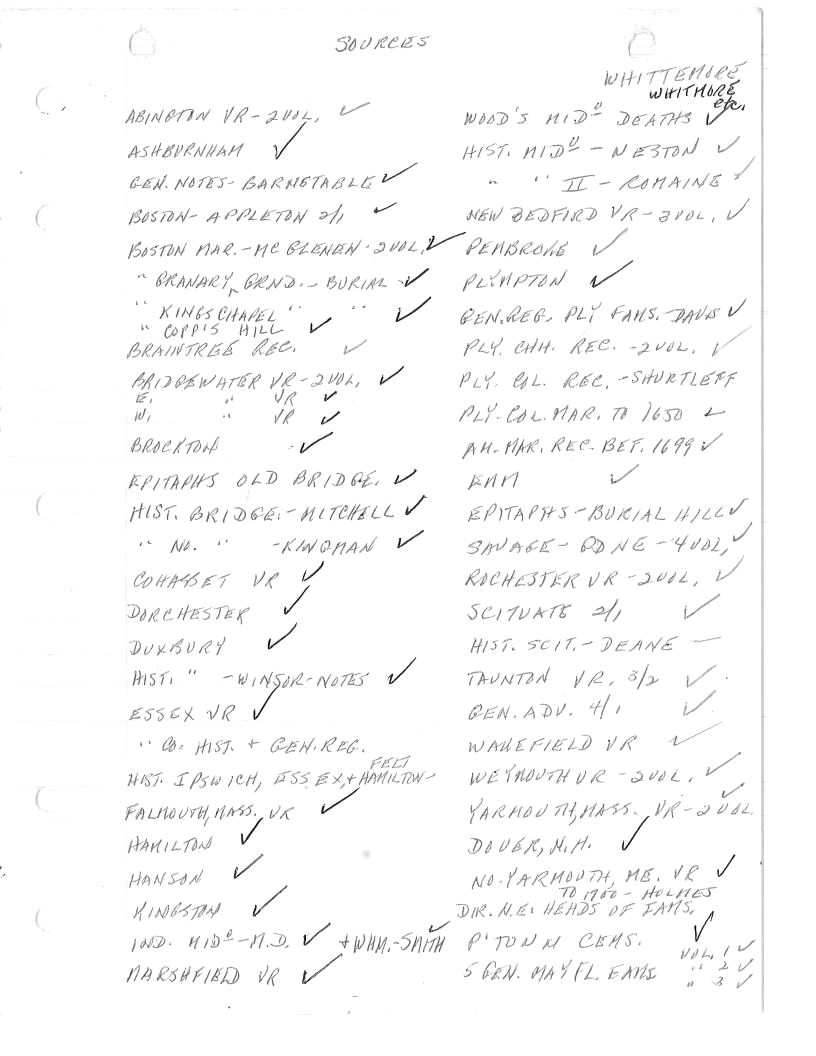 SOURCES
WHITTEMORE
WHITMORE
etc.
ABINGTON VR - 2 VOL. ✓
ASHBURNHAM ✓
GEN. NOTES - BARNSTABLE ✓
BOSTON - APPLETON 2/1 ✓
BOSTON MAR. - MC GLENEN - 2 VOL. ✓
" GRANARY GRND. - BURIAL ✓
" KINGS CHAPEL " " ✓
" COPP'S HILL ✓
BRAINTREE REC. ✓
BRIDGEWATER VR - 2 VOL. ✓
E. " VR ✓
W. " VR ✓
BROCKTON ✓
EPITAPHS OLD BRIDGE. ✓
HIST. BRIDGE. - MITCHELL ✓
" NO. " - KINGMAN ✓
COHASSET VR ✓
DORCHESTER ✓
DUXBURY ✓
HIST. " - WINSOR - NOTES ✓
ESSEX VR ✓
" CO. HIST. + GEN. REG.
HIST. IPSWICH, ESSEX, + HAMILTON - FELT
FALMOUTH, MASS. VR ✓
HAMILTON ✓
HANSON ✓
KINGSTON ✓
IND. MID - M.D. ✓ + WHM. - SMITH ✓
MARSHFIELD VR ✓
WOOD'S MID DEATHS ✓
HIST. MID - WESTON ✓
" " II - ROMAINE ✓
NEW BEDFORD VR - 3 VOL. ✓
PEMBROKE ✓
PLYMPTON ✓
GEN. REG. PLY FAMS. - DAVIS ✓
PLY. CHH. REC. - 2 VOL. ✓
PLY. COL. REC. - SHURTLEFF
PLY. COL. MAR. TO 1650 ✓
AM. MAR. REC. BEF. 1699 ✓
EMM ✓
EPITAPHS - BURIAL HILL ✓
SAVAGE - GDNE - 4 VOL. ✓
ROCHESTER VR - 2 VOL. ✓
SCITUATE 2/1 ✓
HIST. SCIT. - DEANE —
TAUNTON VR. 3/2 ✓
GEN. ADV. 4/1 ✓
WAKEFIELD VR ✓
WEYMOUTH VR - 2 VOL. ✓
YARMOUTH, MASS. VR - 2 VOL. ✓
DOVER, N.H. ✓
NO. YARMOUTH, ME. VR ✓
TO 1700 - HOLMES
DIR. N.E. HEADS OF FAMS.
P'TOWN CEMS. ✓
5 GEN. MAYFL. FAMS VOL. 1 ✓
" 2 ✓
" 3 ✓